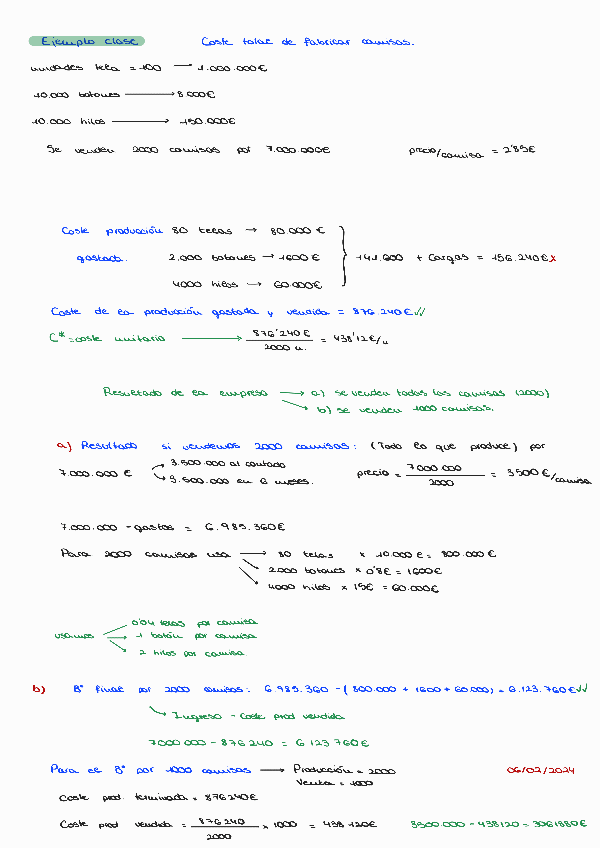 Ejemplo clase Coste total de fabricar camisas.
unidades tela = 100 → 1.000.000€
10.000 botones → 8000€
10.000 hilos → 150.000€
Se venden 2000 camisas por 7.000.000€ precio/camisa = 2'85€
Coste producción 80 telas → 80.000 €
gastada. 2.000 botones → 1600€ 141.600 + Cargas = 156.240€ x
4000 hilos → 60.000€
Coste de la producción gastada y vendida = 876.240€ ✓✓
C* = coste unitario → 876'240€ / 2000 u. = 438'12€/u
Resultado de la empresa → a) se venden todas las camisas (2000)
→ b) se venden 1000 camisas.
a) Resultado si vendemos 2000 camisas: (Todo lo que produce) por
7.000.000 € → 3.500.000 al contado
→ 3.500.000 en 6 meses. precio = 7000 000 / 2000 = 3500€/camisa
7.000.000 - gastos = 6.985.360€
Para 2000 camisas usa → 80 telas x 10.000€ = 800.000€
→ 2.000 botones x 0'8€ = 1600€
→ 4000 hilos x 15€ = 60.000€
usamos 0'04 telas por camisa
→ 1 botón por camisa
→ 2 hilos por camisa
b) Bº final por 2000 camisas: 6.985.360 - (800.000 + 1600 + 60.000) = 6.123.760€ ✓✓
→ Ingreso - Coste prod vendida
7000 000 - 876 240 = 6 123 760€
Para el Bº por 1000 camisas → Producción = 2000 06/02/2024
Venta = 1000
Coste prod. terminada = 876240€
Coste prod vendida = 876240 / 2000 x 1000 = 438 120€ 3500.000 - 438120 = 3061880€